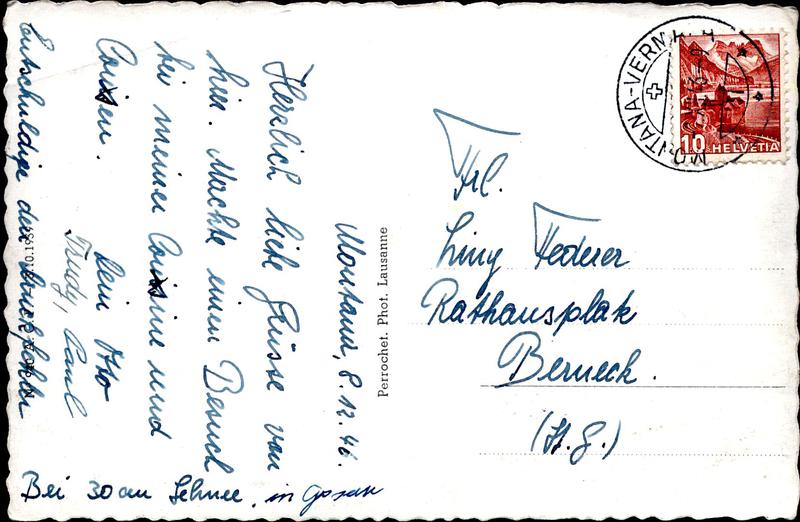 Montana, 8.12.46.
Herzlich liebe Grüsse von
hier. Machte einen Besuch
bei meiner Cousine und
Cousen.
Dein Otto
Trudy, Paul
Entschuldige der Druckfehler
Bei 30 cm Schnee, in
Perrochet. Phot. Lausanne
MONTANA-VERMALA
10 HELVETIA
Frl.
Liny Federer
Rathausplatz
Berneck.
(St. G.)